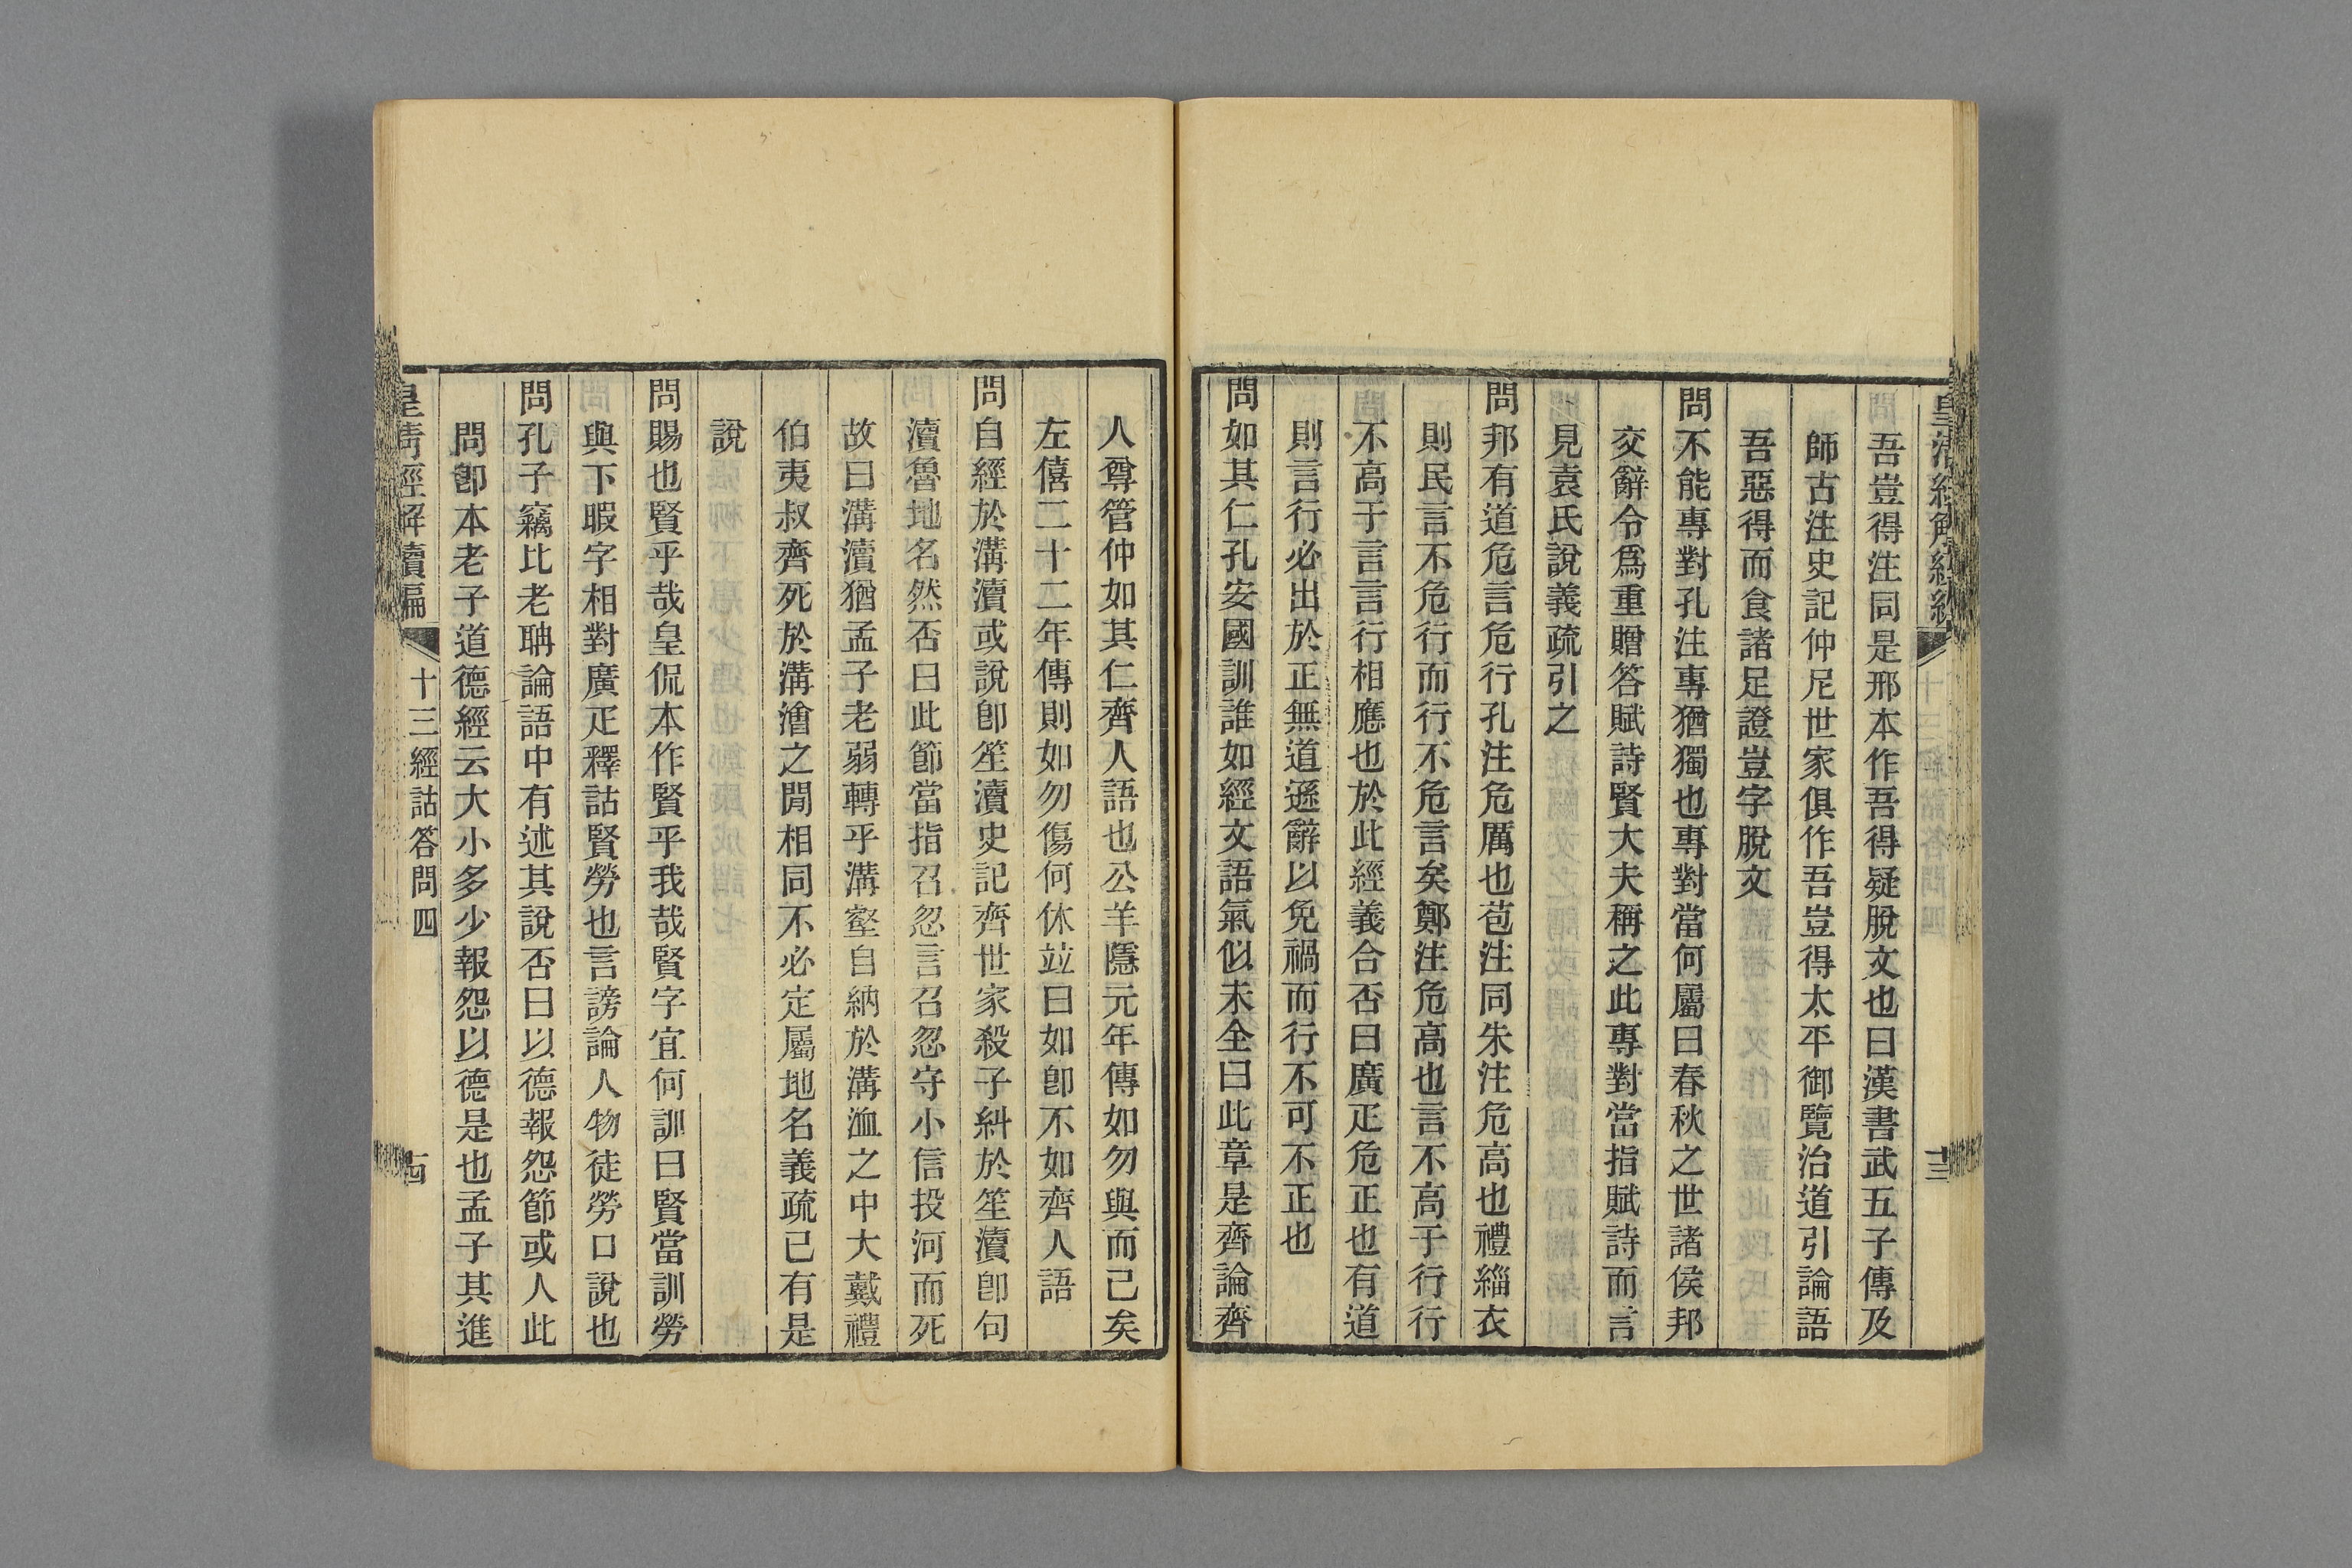 吾豈得注同是邢本作吾得疑脫文也曰漢書武五子傳及
師古注史記仲尼世家俱作吾豈得太平御覽治道引論語
吾惡得而食諸足證豈字脫文
問不能專對孔注專猶獨也專對當何屬曰春秋之世諸侯邦
交辭令爲重贈答賦詩賢大夫稱之此專對當指賦詩而言
見袁氏說義疏引之
問邦有道危言危行孔注危厲也苞注同朱注危高也禮緇衣
則民言不危行而行不危言矣鄭注危高也言不高于行行
不高于言言行相應也於此經義合否曰廣疋危正也有道
則言行必出於正無道遜辭以免禍而行不可不正也
問如其仁孔安國訓誰如經文語氣似未全曰此章是齊論齊
人尊管仲如其仁齊人語也公羊隱元年傳如勿與而已矣
左僖二十二年傳則如勿傷何休竝曰如卽不如齊人語
問自經於溝瀆或說卽笙瀆史記齊世家殺子糾於笙瀆卽句
瀆魯地名然否曰此節當指召忽言召忽守小信投河而死
故曰溝瀆猶孟子老弱轉乎溝壑自納於溝洫之中大戴禮
伯夷叔齊死於溝澮之閒相同不必定屬地名義疏已有是
說
問賜也賢乎哉皇侃本作賢乎我哉賢字宜何訓曰賢當訓勞
與下暇字相對廣疋釋詁賢勞也言謗論人物徒勞口說也
問孔子竊比老聃論語中有述其說否曰以德報怨節或人此
問卽本老子道德經云大小多少報怨以德是也孟子其進
皇清經解續編 十三經詁答問四 十四